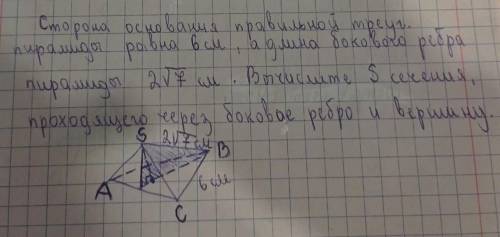 Сторона основания правильной треуг.
пирамиды равна 6 см, а длина бокового ребра
пирамиды 2√7 см. Вычислите S сечения,
проходящего через боковое ребро и вершину.
S 2√7 см
B
A
6 см
C